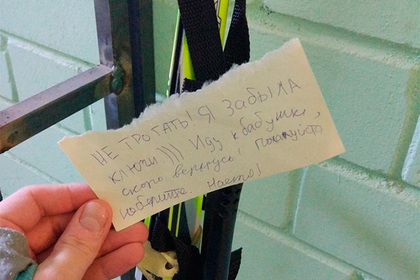 НЕ ТРОГАТЬ! Я ЗАБЫЛА
КЛЮЧИ))) Иду к бабушке,
скоро вернусь, пожалуйста
не берите. Настя!